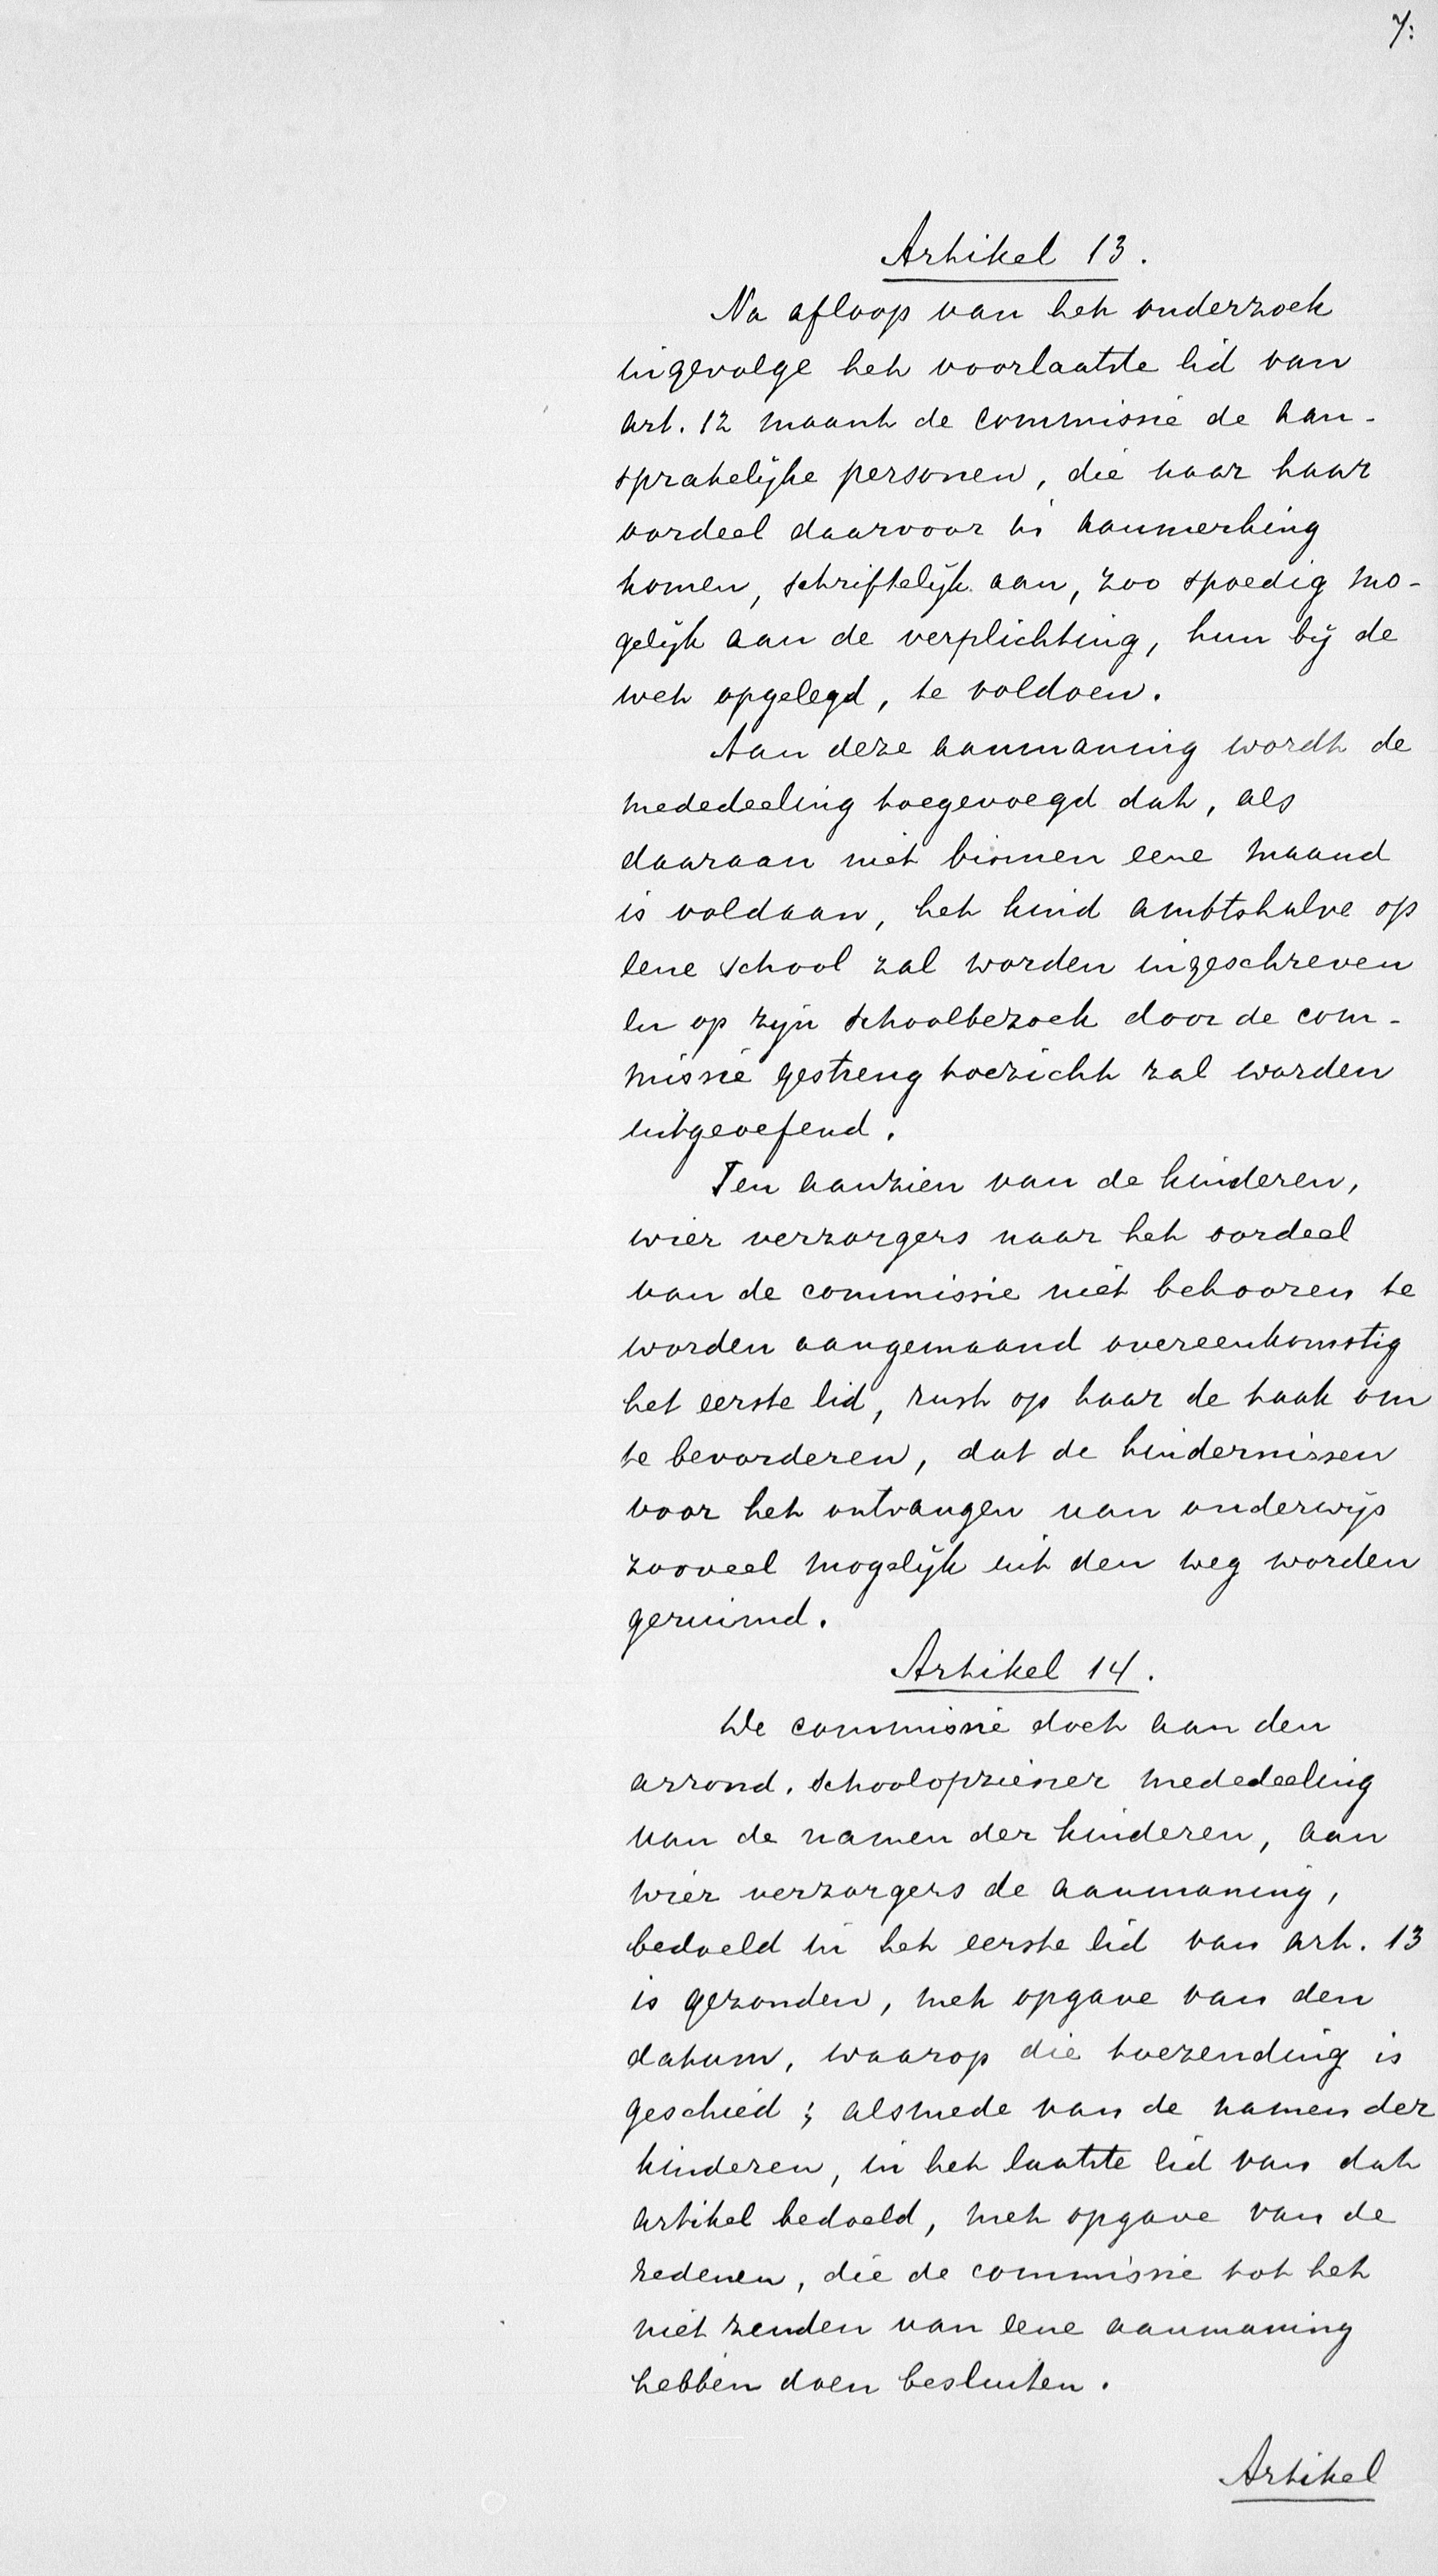 7:
Artikel 13.
Na afloop van het onderzoek
ingevolge het voorlaatste lid van
art. 12 maant de commissie de aan-
sprakelijke personen, die naar haar
oordeel daarvoor in aanmerking
komen, schriftelijk aan, zoo spoedig mo-
gelijk aan de verplichting, hun bij de
wet opgelegd, te voldoen.
Aan deze aanmaning wordt de
mededeeling toegevoegd dat, als
daaraan niet binnen eene maand
is voldaan, het kind ambtshalve op
eene school zal worden ingeschreven
en op zijn schoolbezoek door de com-
missie gestreng toezicht zal worden
uitgeoefend.
Ten aanzien van de kinderen,
wier verzorgers naar het oordeel
van de commissie niet behooren te
worden aangemaand overeenkomstig
het eerste lid, rust op haar de taak om
te bevorderen, dat de hindernissen
voor het ontvangen van onderwijs
zooveel mogelijk uit den weg worden
geruimd.
Artikel 14.
De commissie doet aan den
arrond. schoolopziener mededeeling
van de namen der kinderen, aan
wier verzorgers de aanmaning,
bedoeld in het eerste lid van art. 13
is gezonden, met opgave van den
datum, waarop die toezending is
geschied; alsmede van de namen der
kinderen, in het laatste lid van dat
artikel bedoeld, met opgave van de
redenen, die de commissie tot het
niet zenden van eene aanmaning
hebben doen besluiten.
Artikel